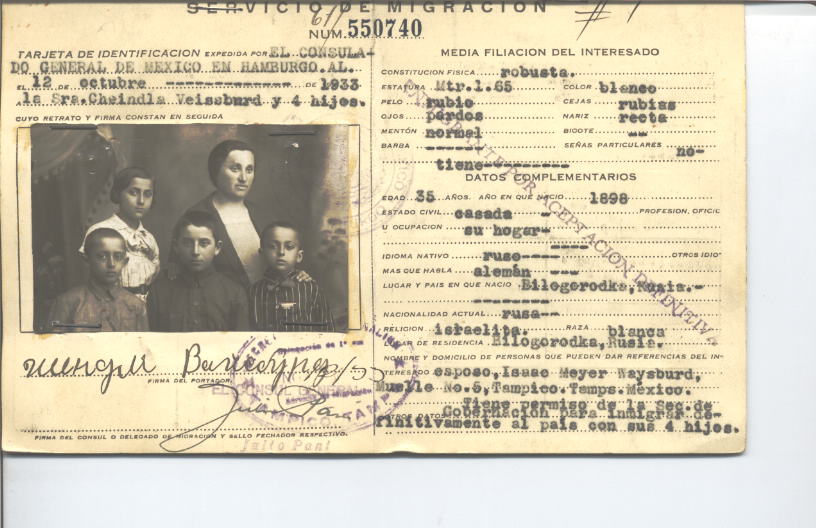 SERVICIO DE MIGRACION
NUM. 550740
TARJETA DE IDENTIFICACION EXPEDIDA POR EL CONSULA-
DO GENERAL DE MEXICO EN HAMBURGO.AL.
EL 12 DE octubre ------------- DE 1933
A la Sra.Cheindla Veissburd y 4 hijos.
CUYO RETRATO Y FIRMA CONSTAN EN SEGUIDA
FIRMA DEL PORTADOR.
EL CONSUL GENERAL
FIRMA DEL CONSUL O DELEGADO DE MIGRACION Y SELLO FECHADOR RESPECTIVO.
Julio Pani
MEDIA FILIACION DEL INTERESADO
CONSTITUCION FISICA robusta.
ESTATURA Mtr.1.65 COLOR blanco
PELO rubio CEJAS rubias
OJOS pardos NARIZ recta
MENTÓN normal BIGOTE --
BARBA ------ SEÑAS PARTICULARES no-
tiene--------
DATOS COMPLEMENTARIOS
EDAD 35 AÑOS. AÑO EN QUE NACIO 1898
ESTADO CIVIL casada - PROFESION, OFICIO
U OCUPACION su hogar-
----
IDIOMA NATIVO ruso---- OTROS IDIO
MAS QUE HABLA alemán ---
LUGAR Y PAIS EN QUE NACIO Bilogorodka, Rusia.-
--------
NACIONALIDAD ACTUAL rusa--
RELIGION israelita. RAZA blanca
LUGAR DE RESIDENCIA Bilogorodka, Rusia.
NOMBRE Y DOMICILIO DE PERSONAS QUE PUEDEN DAR REFERENCIAS DEL IN-
TERESADO esposo, Isaac Meyer Waysburd,
Muelle No.5, Tampico. Tamps. México.
Tiene permiso de la Sec. de
OTROS DATOS Gobernación para inmigrar de-
finitivamente al país con sus 4 hijos.
INMIGRANTE POR ACEPTACION DEFINITIVA